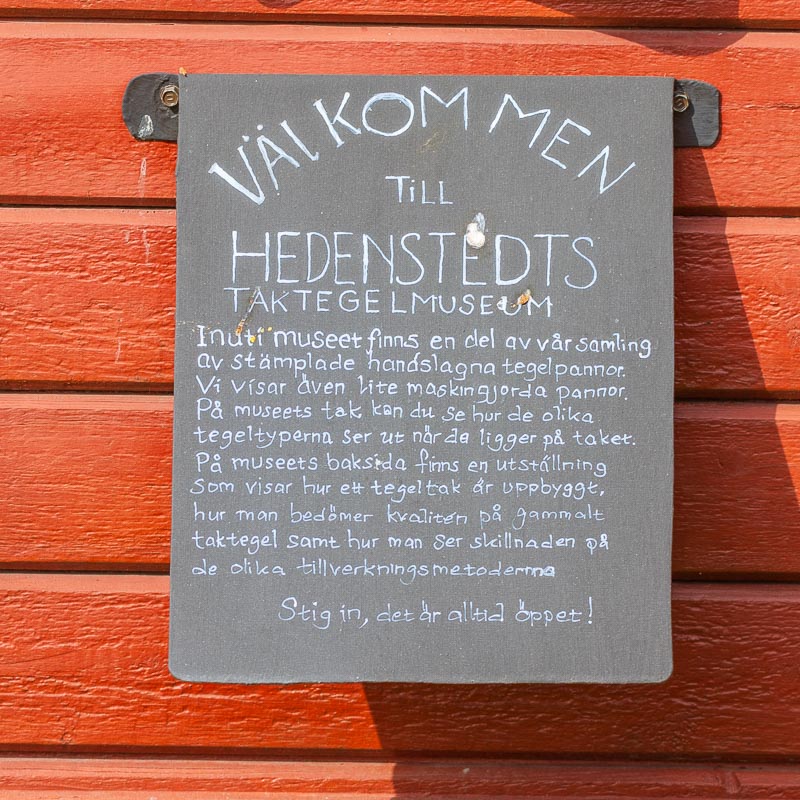 VÄLKOMMEN
TILL
HEDENSTEDTS
TAKTEGELMUSEUM
Inuti museet finns en del av vår samling
av stämplade handslagna tegelpannor.
Vi visar även lite maskingjorda pannor.
På museets tak kan du se hur de olika
tegeltyperna ser ut när de ligger på taket.
På museets baksida finns en utställning
som visar hur ett tegeltak är uppbyggt,
hur man bedömer kvaliten på gammalt
taktegel samt hur man ser skillnaden på
de olika tillverkningsmetoderna
Stig in, det är alltid öppet!